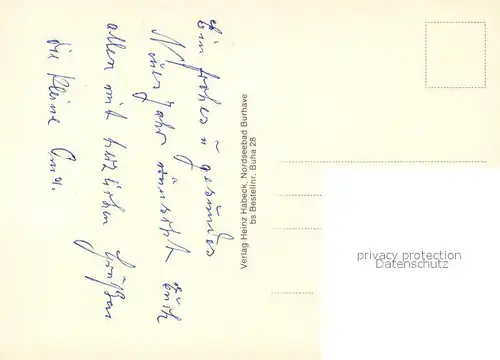 Ein frohes u gesundes
Neues Jahr wünscht Euch
allen mit herzlichen Grüßen
die kleine
Verlag Heinz Habeck, Nordseebad Burhave
bs Bestellnr. Buha 28
privacy protection
Datenschutz